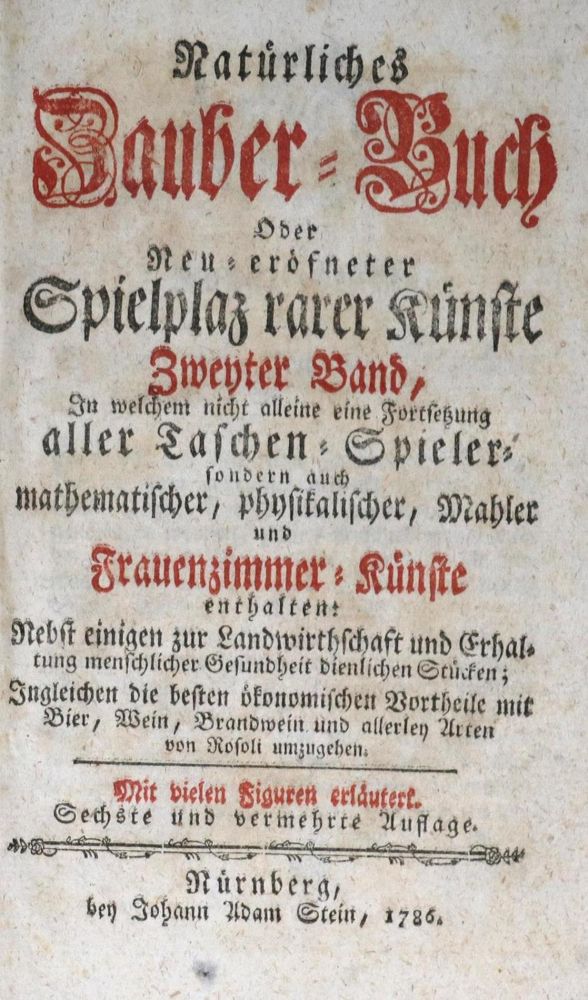 Natürliches
Zauber-Buch
Oder
Neu-eröfneter
Spielplaz rarer Künste
Zweyter Band,
In welchem nicht alleine eine Fortsetzung
aller Taschen-Spieler-
sondern auch
mathematischer, physikalischer, Mahler
und
Frauenzimmer-Künste
enthalten:
Nebst einigen zur Landwirthschaft und Erhal-
tung menschlicher Gesundheit dienlichen Stücken;
Ingleichen die besten ökonomischen Vortheile mit
Bier, Wein, Brandwein und allerley Arten
von Rosoli umzugehen.
Mit vielen Figuren erläutert.
Sechste und vermehrte Auflage.
Nürnberg,
bey Johann Adam Stein, 1786.